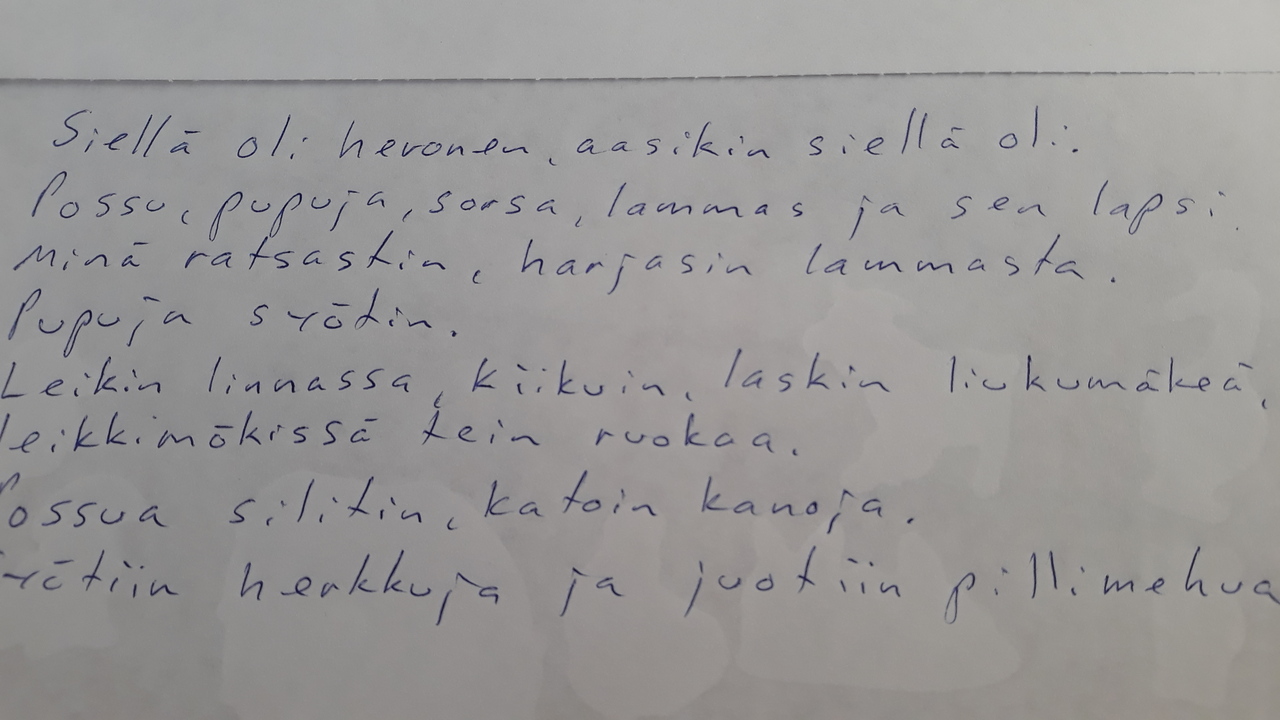 Siellä oli hevonen, aasikin siellä oli.
Possu, pupuja, sorsa, lammas ja sen lapsi.
Minä ratsastin, harjasin lammasta.
Pupuja syötin.
Leikin linnassa, kiikuin, laskin liukumäkeä,
leikkimökissä tein ruokaa.
Possua silitin, katoin kanoja.
Syötiin herkkuja ja juotiin pillimehua